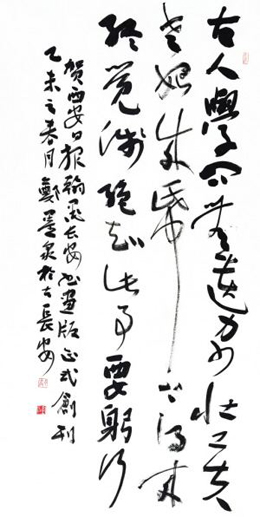 古人学问无遗力少壮工夫
老始成纸上得来
终觉浅绝知此事要躬行
贺西安日报翰墨长安书画版正式创刊
乙未之春月郑墨泉於古长安